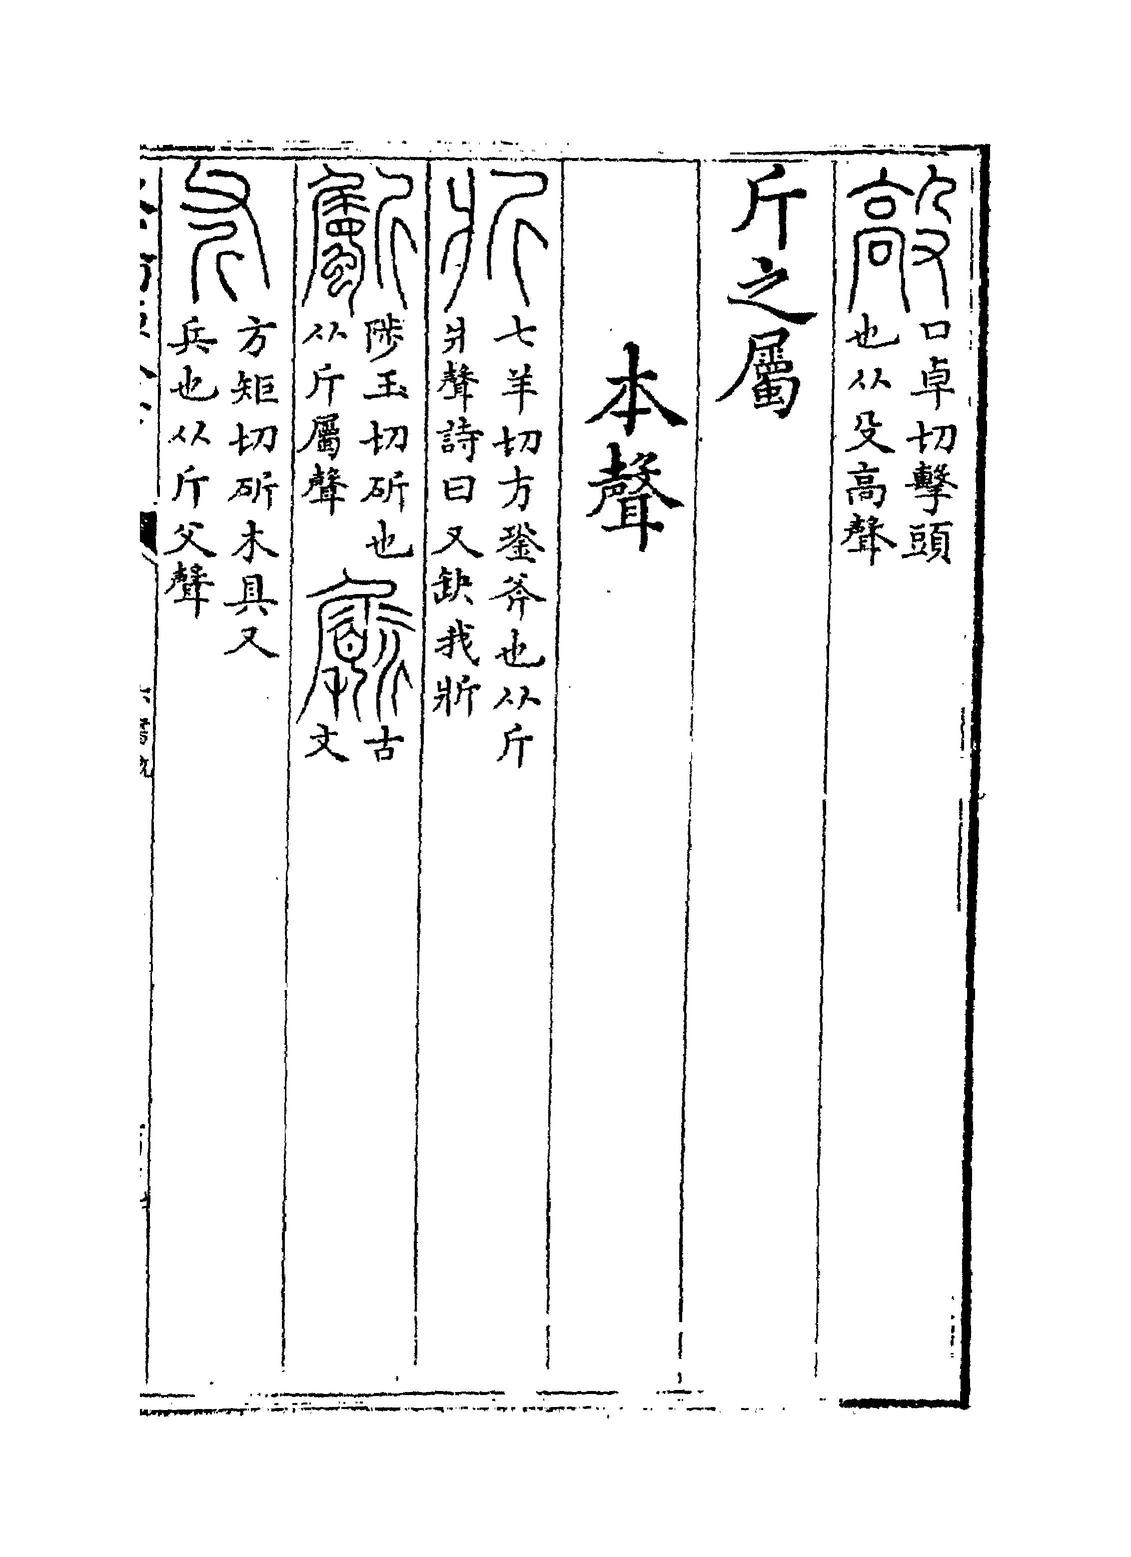 毃 口卓切擊頭
也从殳高聲
斤之屬
本聲
斨 七羊切方銎斧也从斤
爿聲詩曰又缺我斨
斸 陟玉切斫也
从斤屬聲
古
文
斧 方矩切斫木具又
兵也从斤父聲